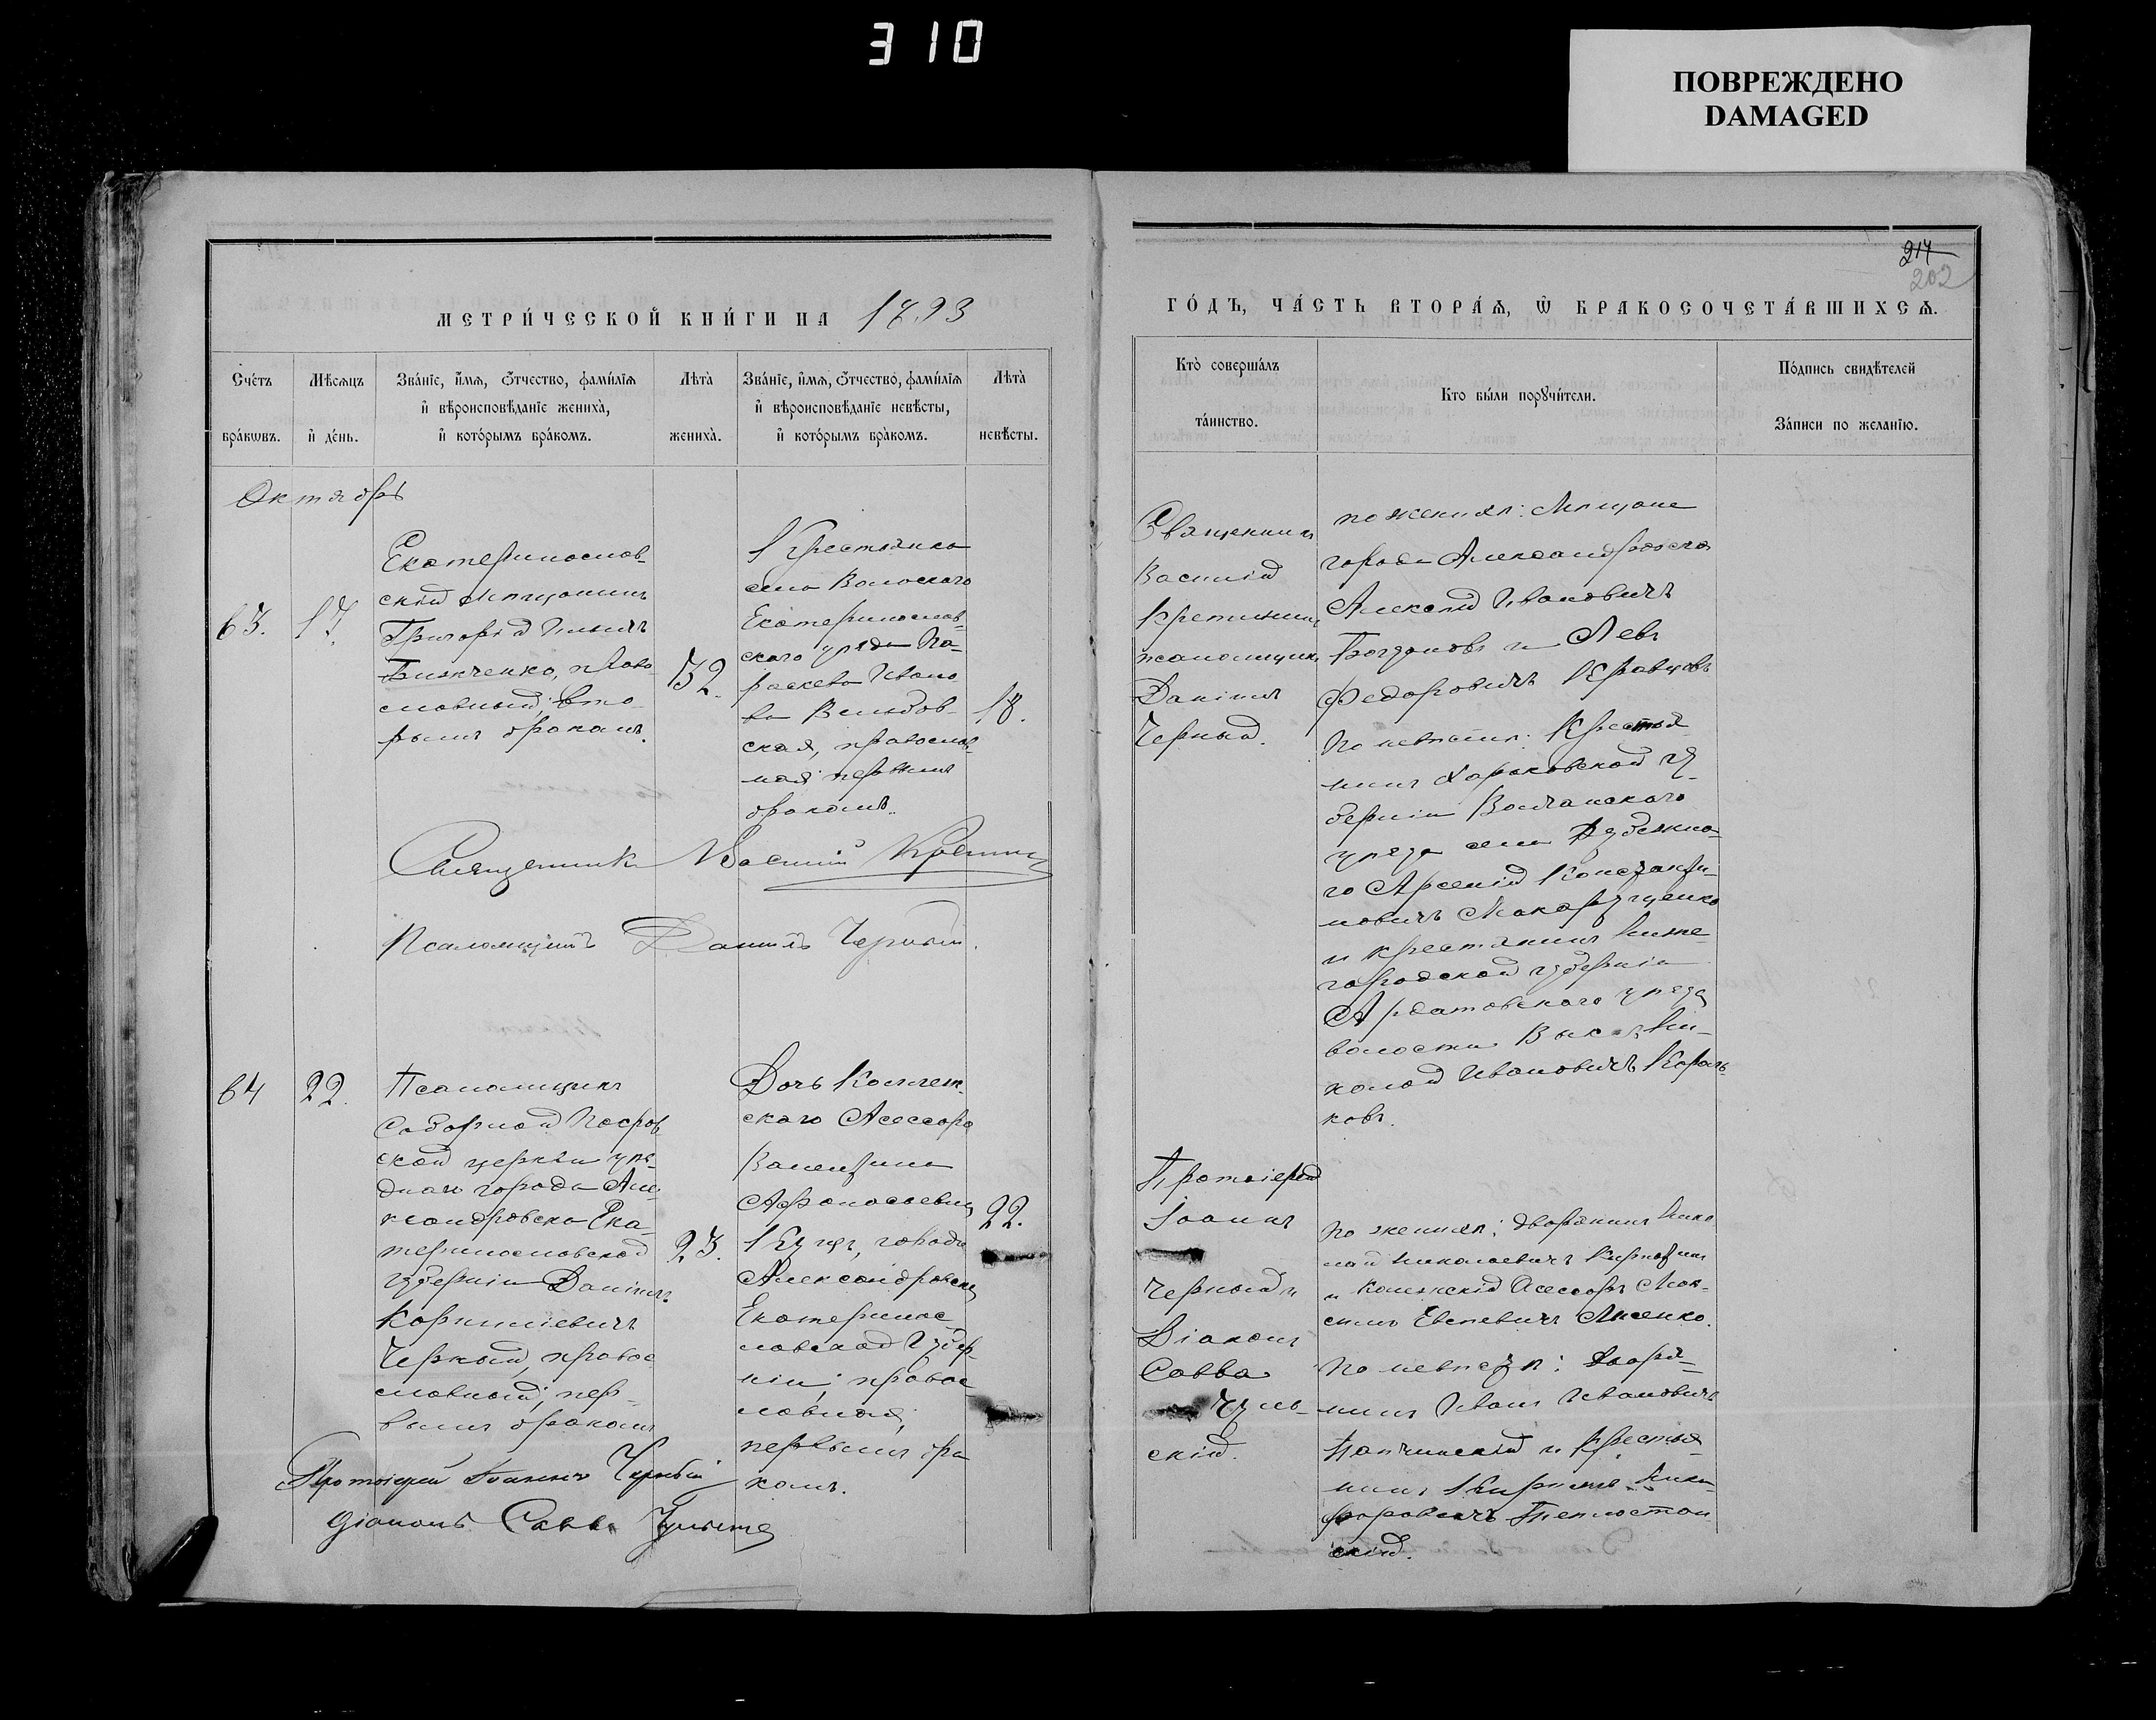 310
ПОВРЕЖДЕНО
DAMAGED
214
202
МЕТРИ́ЧЕСКОЙ КНИ́ГИ НА 1893
ГО́ДЪ, ЧА́СТЬ ВТОРА́Ѧ, Ѡ҆ БРАКОСОЧЕТА́ВШИХСѦ.
Сче́тъ бра́кѡвъ.
Мѣ́сѧцъ и҆ де́нь.
Зва́нїе, и҆́мѧ, ѻ҆́тчество, фами́лїѧ
и҆ вѣроисповѣ́данїе жениха̀,
и҆ кото́рымъ бра́комъ.
Лѣта̀ жениха̀.
Зва́нїе, и҆́мѧ, ѻ҆́тчество, фами́лїѧ
и҆ вѣроисповѣ́данїе невѣ́сты,
и҆ кото́рымъ бра́комъ.
Лѣта̀ невѣ́сты.
Кто̀ соверша́лъ
та́инство.
Кто бы́ли порꙋчи́тели.
По́дпись свидѣ́телей
За́писи по жела́нїю.
Октябрь
63.
17.
Екатеринослав-
скій мѣщанинъ
Григорій Ильичъ
православный; вто-
рымъ бракомъ.
52.
Крестьянка
села Волоскаго
Екатеринослав-
скаго уѣзда Па-
раскева Ивано-
ва
ская, православ-
ная; первымъ
бракомъ.
18.
Священникъ
Василій
псаломщикъ
Даніилъ
Черный.
по женихѣ: Мѣщане
города Александровска
Алексѣй Ивановичъ
Богдановъ и Левъ
Федоровичъ Кравцовъ
По невѣстѣ: Крестья-
нинъ Харьковской гу-
берніи Волчанскаго
уѣзда села Рубежна-
го Арсеній Константи-
новичъ Макарущенко
и крестьянинъ Ниже-
городской губерніи
Ардатовскаго уѣзда
волости Ни-
колай Ивановичъ Король-
ковъ.
Священникъ Василій
Псаломщикъ Даніилъ Черный.
64
22.
Псаломщикъ
Соборной Покров-
ской церкви уѣз-
днаго города Але-
ксандровска Ека-
теринославской
губерніи Даніилъ
Корниліевичъ
Черный, правос-
лавный; пер-
вымъ бракомъ
23.
Дочь Коллеж-
скаго Асессора
Валентина
Афанасьевна
Куцъ, города
Александровска
Екатеринос-
лавской Губер-
ніи; правос-
лавная;
первымъ бра-
комъ.
22.
Протоіерей
Іоаннъ
Черный и
Діаконъ
Савва
Чуль-
скій.
По женихѣ: дворянинъ Нико-
лай Николаевичъ
и Колежскій Асессоръ Мак-
симъ Евсѣевичъ Лисенко.
По невѣстѣ: Дворя-
нинъ Иванъ Ивановичъ
и Крестья-
нинъ Кириллъ Ники-
форовичъ
скій.
Протоіерей Іоаннъ Черный
Діаконъ Савва